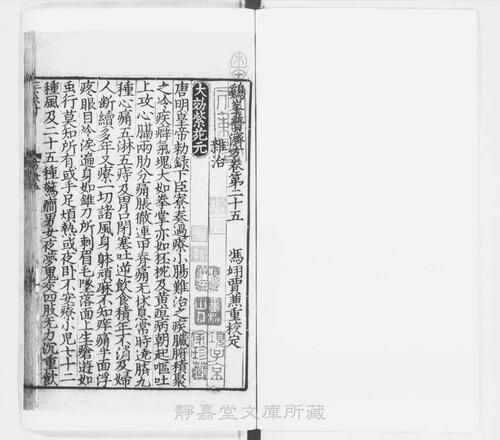 鷄峯普濟方卷第二十五
馮翊賈兼重校定
雜治
大効紫菀元
唐明皇帝勑録下臣寮奏過療小腸難治之疾臟腑積聚
之冷疾癖氣塊大如拳掌亦如杯椀及黄疸病朝起嘔吐
上攻心膈兩肋分痛脹徹連甲脊痛无休息常時遶臍九
種心痛五淋五痔及胃口閉塞吐逆飲食積年不消及婦
人断續多年又療一切諸風身躰頑麻不知痒痛半面浮
疼眼目冷淚遍身如錐刀所刺眉毛墜落面上生瘡遊如
虫行莫知所有或手足煩熱或夜卧不安療小児七十二
種風及二十五種驚癎男女夜夢鬼交四肢无力沉重飲
靜嘉堂文庫所藏